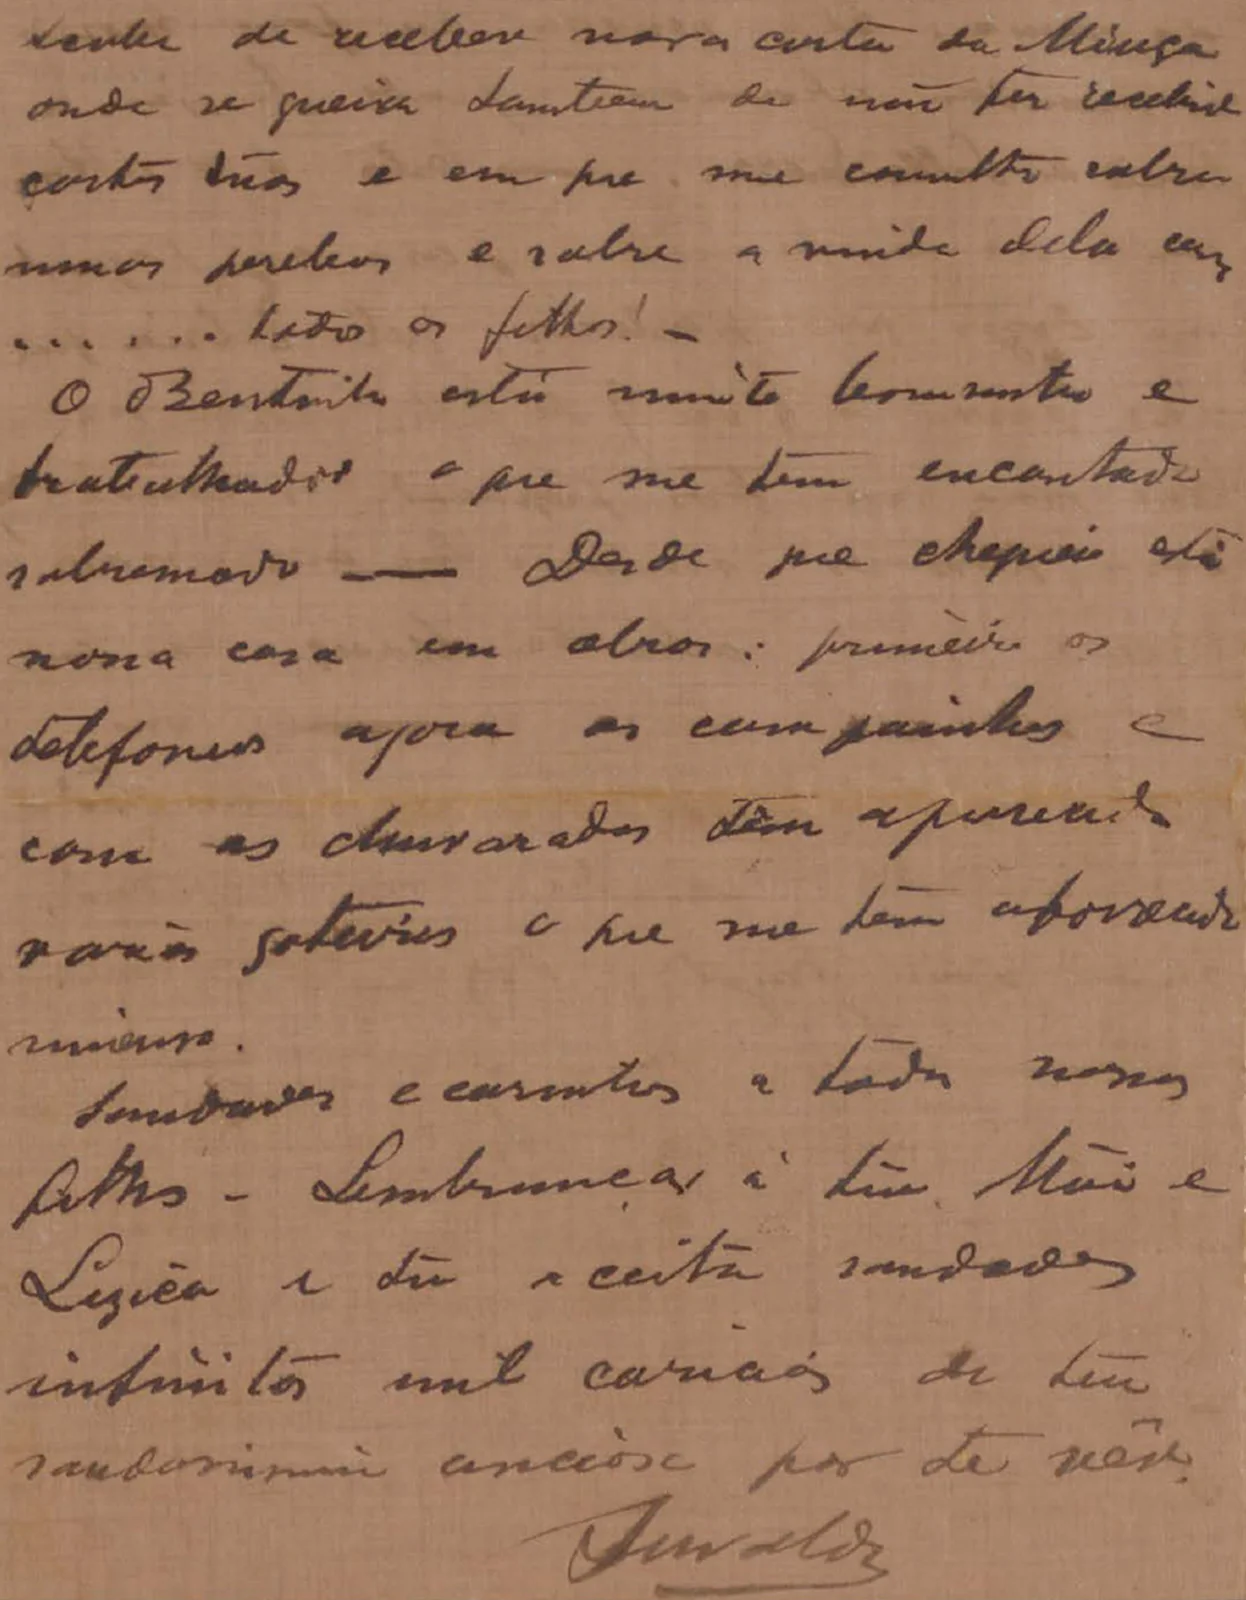 de receber nova carta da Minga
onde se queixa tambem de não ter recebido
cartas tuas e em que me consulta sobre
umas perebas e sobre a vinda dela com
...... todos os filhos! —
O Bentinho está muito bomsinho e
trabalhador o que me tem encantado
sobremodo — Desde que cheguei está
nossa casa em obras: primeiro os
telefones agora as campainhas e
com as chuvaradas têm aparecido
varias goteiras o que me têm aborrecido
imenso.
Saudades e carinhos a todos nossos
filhos - Lembranças à tua Mãi e
Ligica e tu aceita saudades
infinitas mil caricias de teu
saudosissimo ancioso por te vêr.